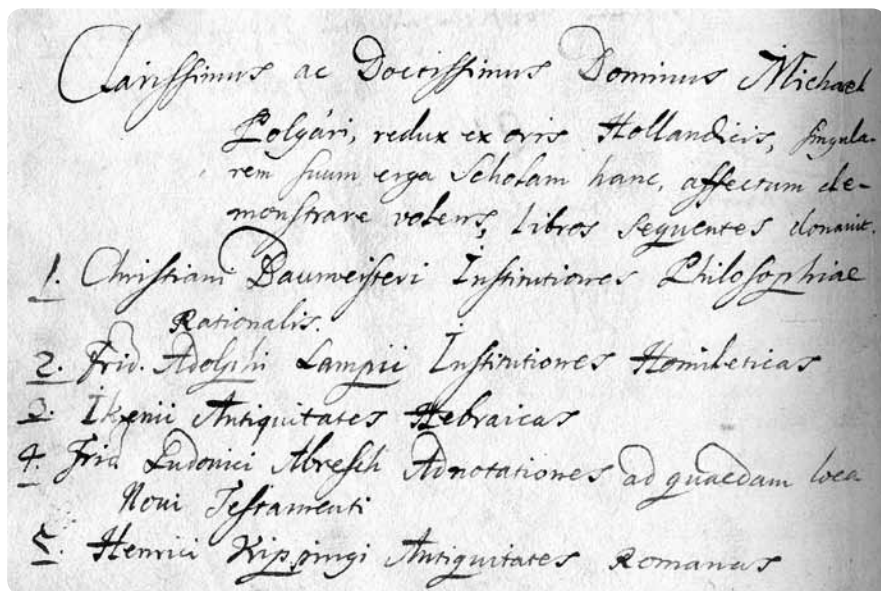 Clarissimus ac Doctissimus Dominus Michael
Polgári, redux ex oris Hollandicis, singula-
rem suum erga Scholam hanc, affectum de-
monstrare volens, Libros sequentes donavit.
1. Christiani Baumeisteri Institutiones Philosophiae
Rationalis.
2. Frid. Adolphi Lampii Institutiones Homileticas
3. Ikenii Antiquitates Hebraicas
4. Frid Ludovici Abresch Adnotationes ad quaedam loca
Novi Testamenti
5. Henrici Kippingi Antiquitates Romanas